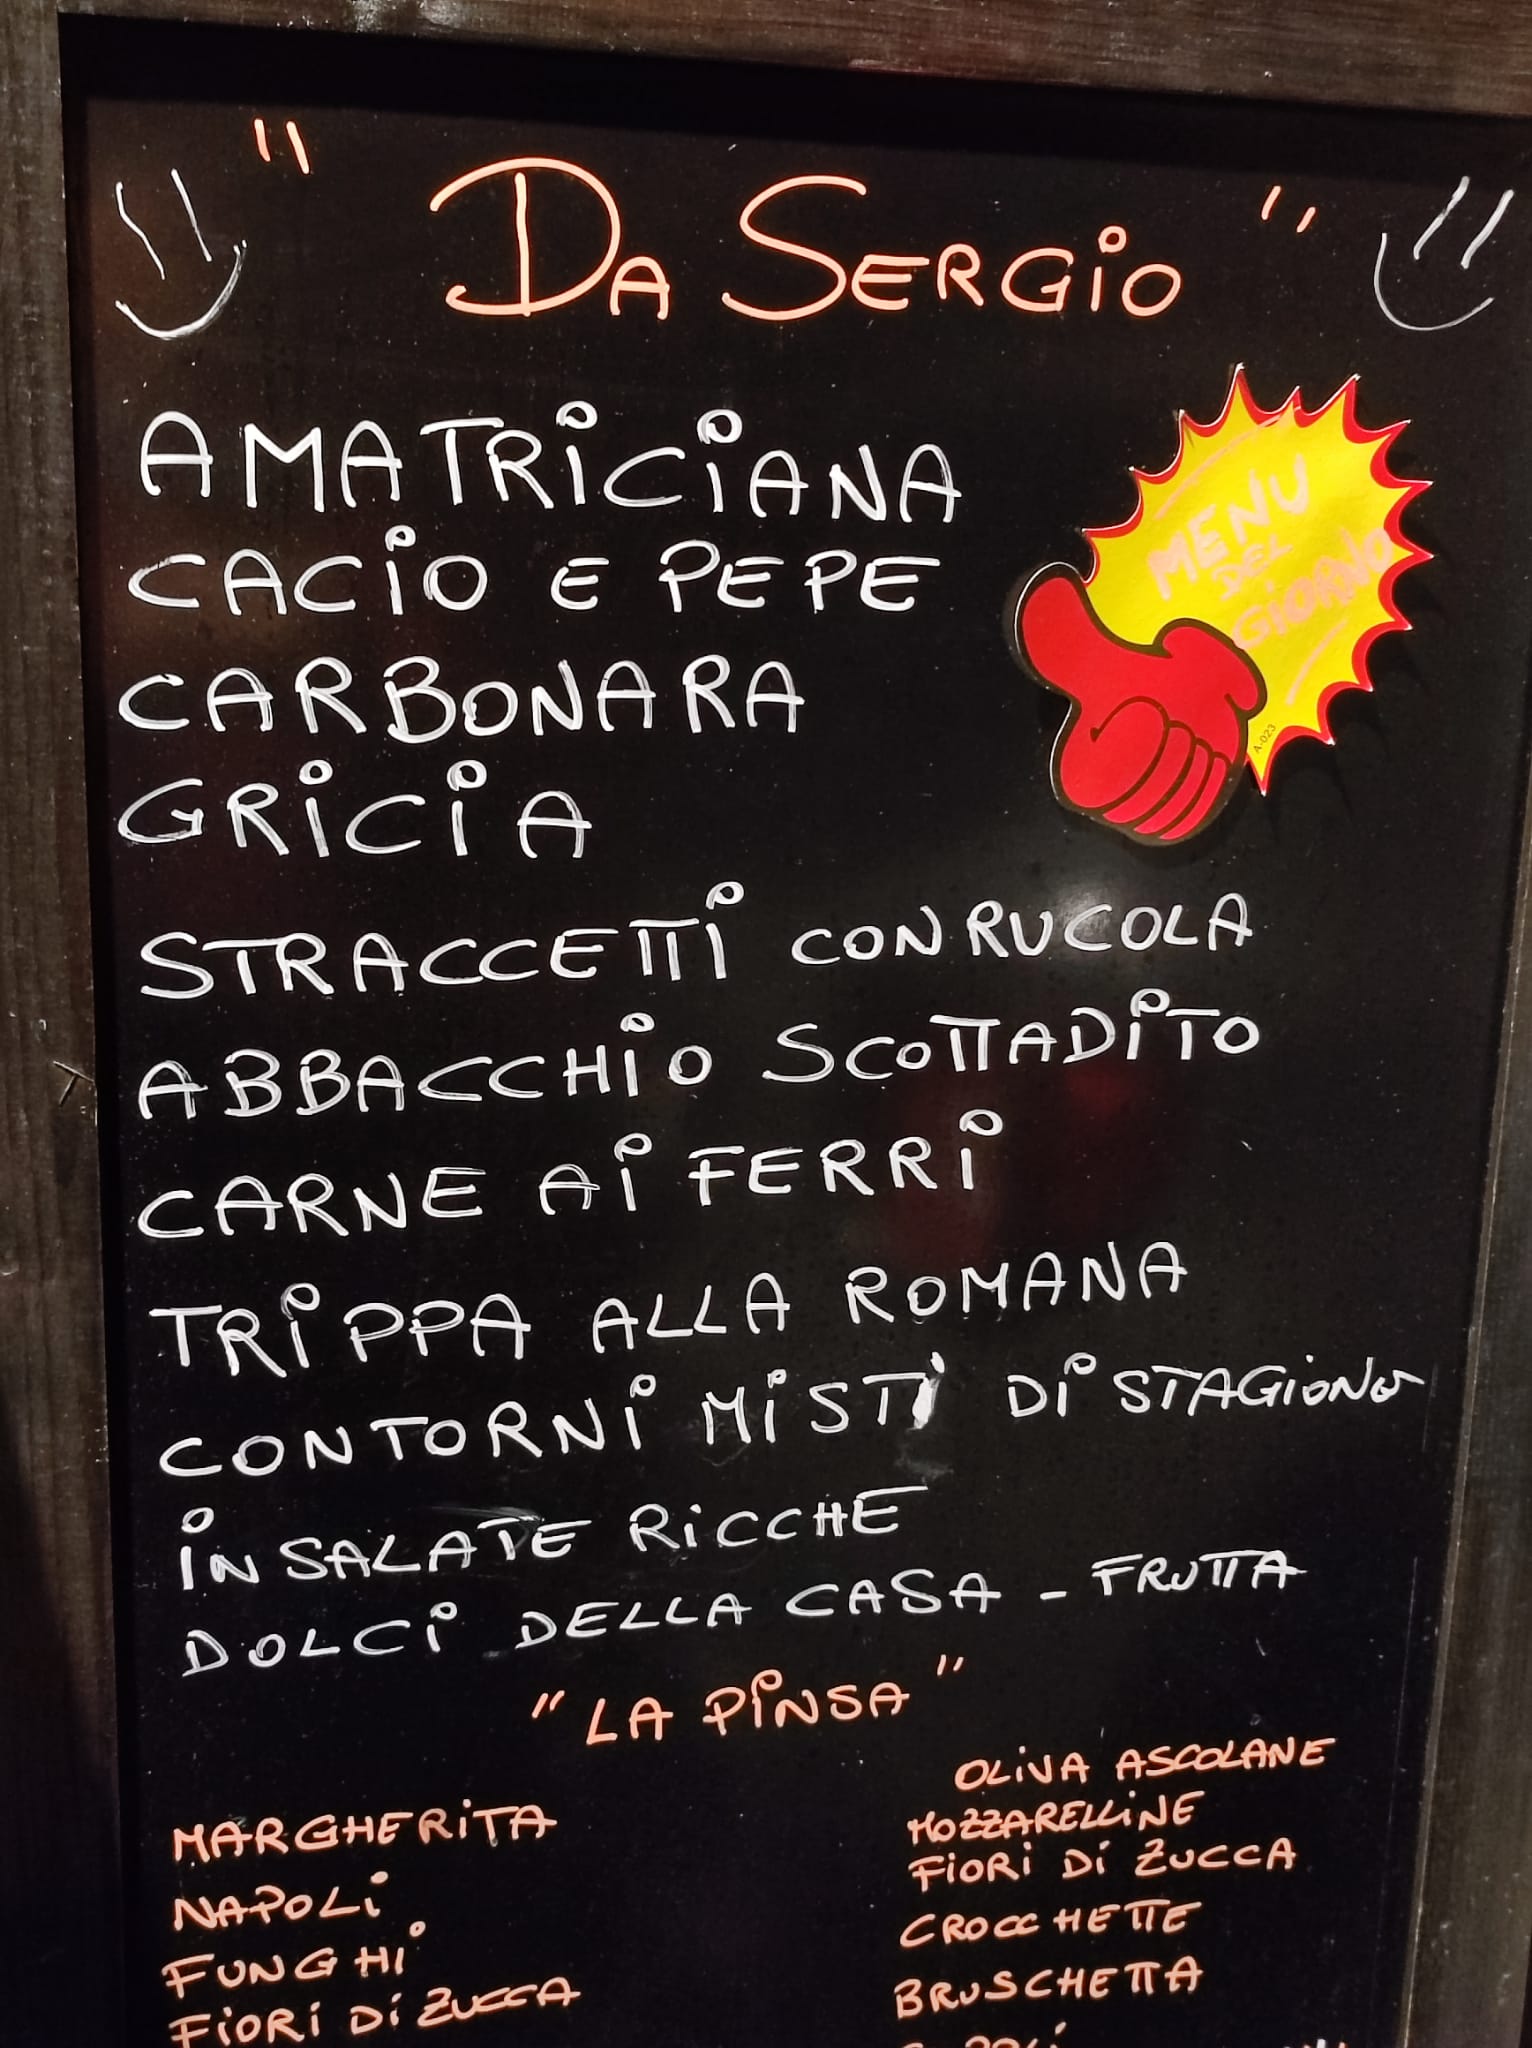 " Da Sergio "
MENU
DEL
GIORNO
A-023
AMATRICIANA
CACIO E PEPE
CARBONARA
GRICIA
STRACCETTI CON RUCOLA
ABBACCHIO SCOTTADITO
CARNE AI FERRI
TRIPPA ALLA ROMANA
CONTORNI MISTI DI STAGIONE
INSALATE RICCHE
DOLCI DELLA CASA - FRUTTA
"LA PINSA"
MARGHERITA
NAPOLI
FUNGHI
FIORI DI ZUCCA
OLIVA ASCOLANE
MOZZARELLINE
FIORI DI ZUCCA
CROCCHETTE
BRUSCHETTA